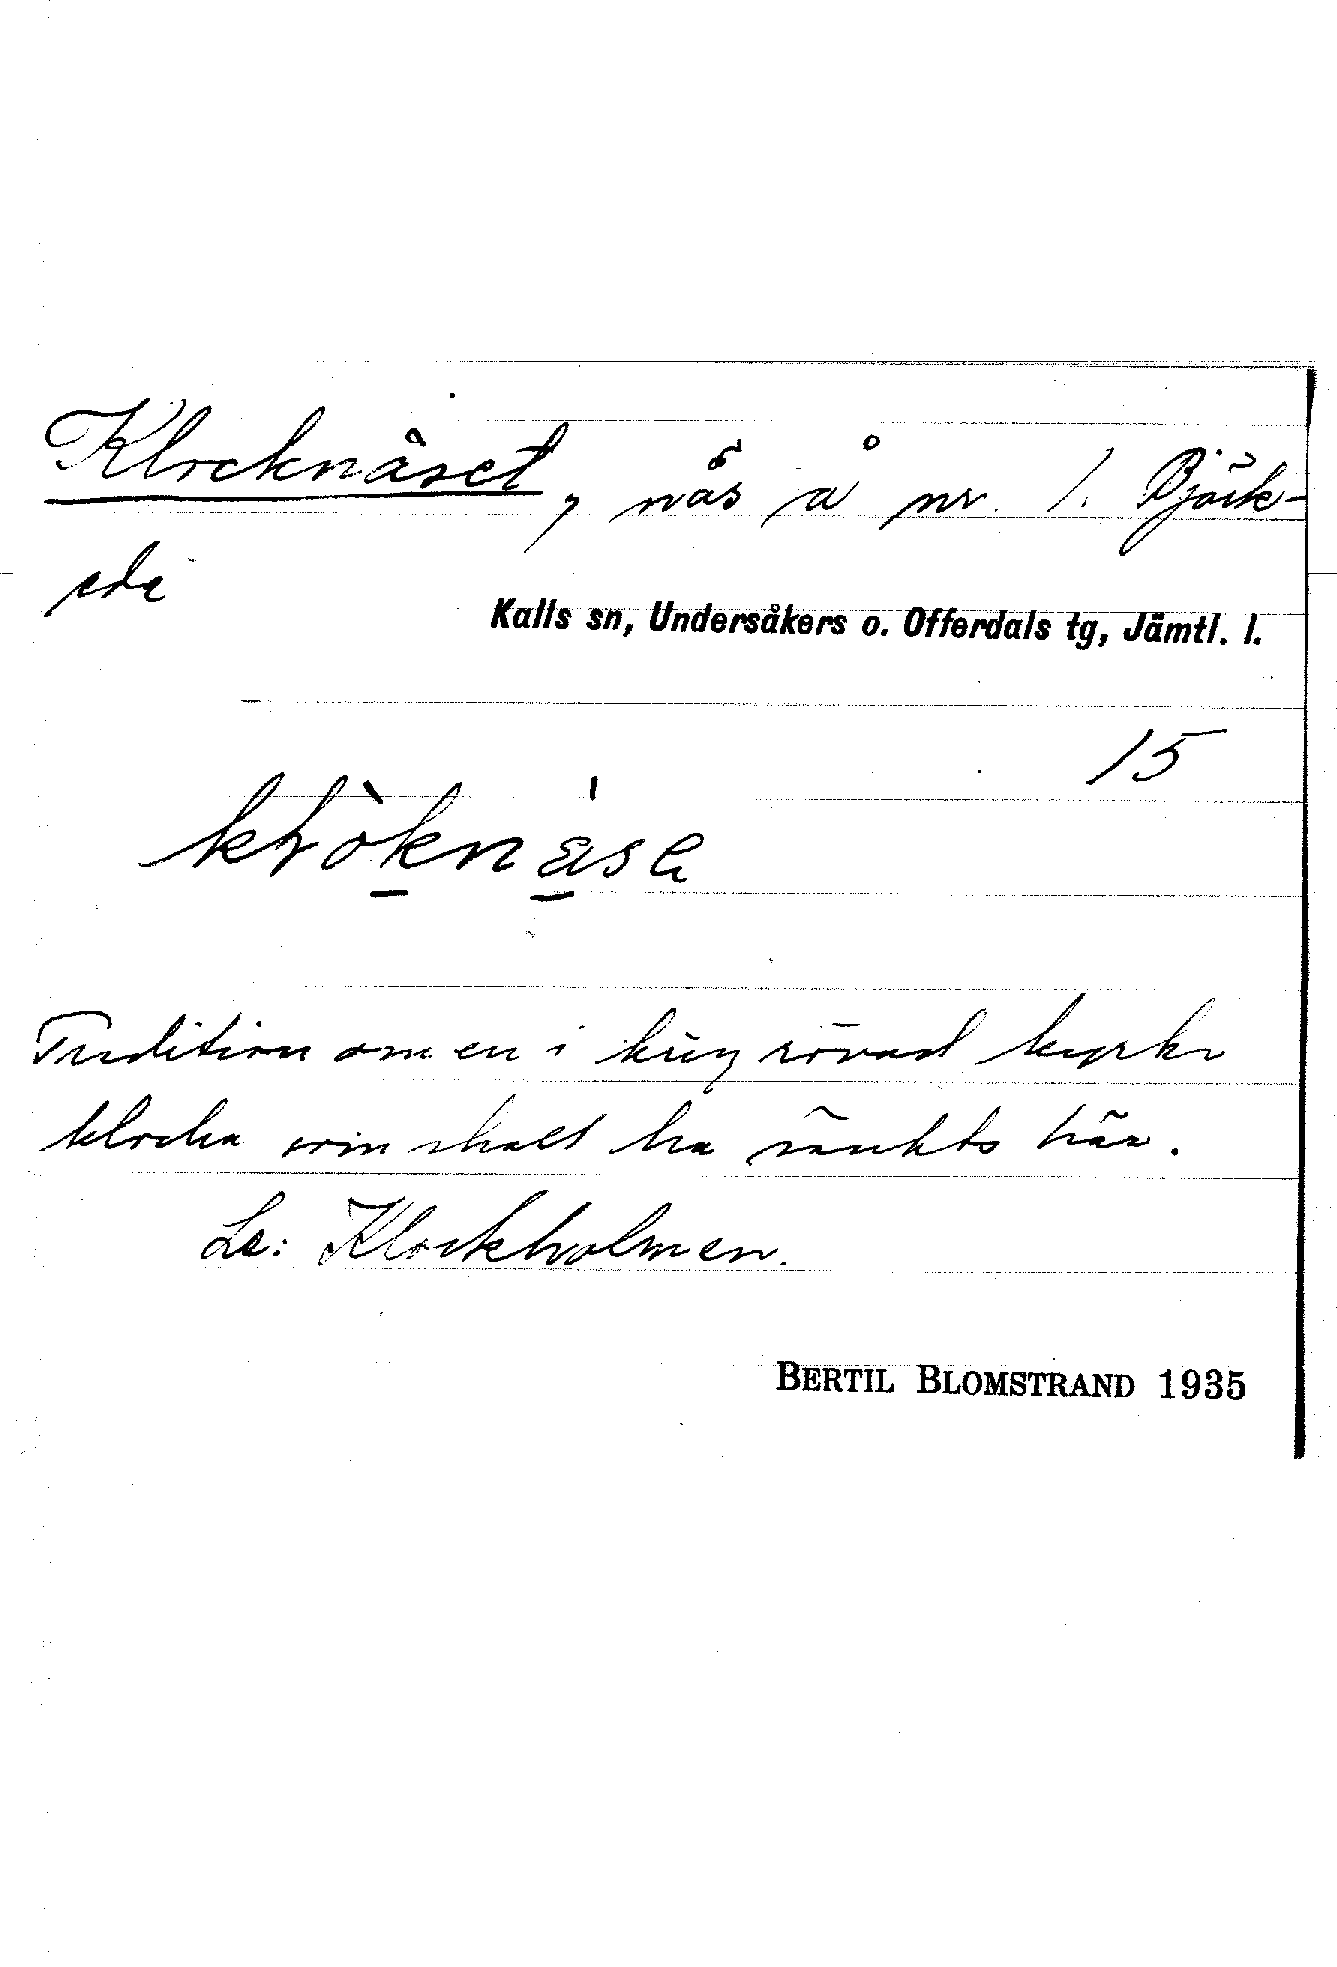 Klocknäset, näs å nr. 1. Björk-
ede
Kalls sn, Undersåkers o. Offerdals tg, Jämtl. l.
15
Tradition om en i krig rövad kyrk
klocka som skall ha sänkts här.
Se: Klockholmen.
BERTIL BLOMSTRAND 1935